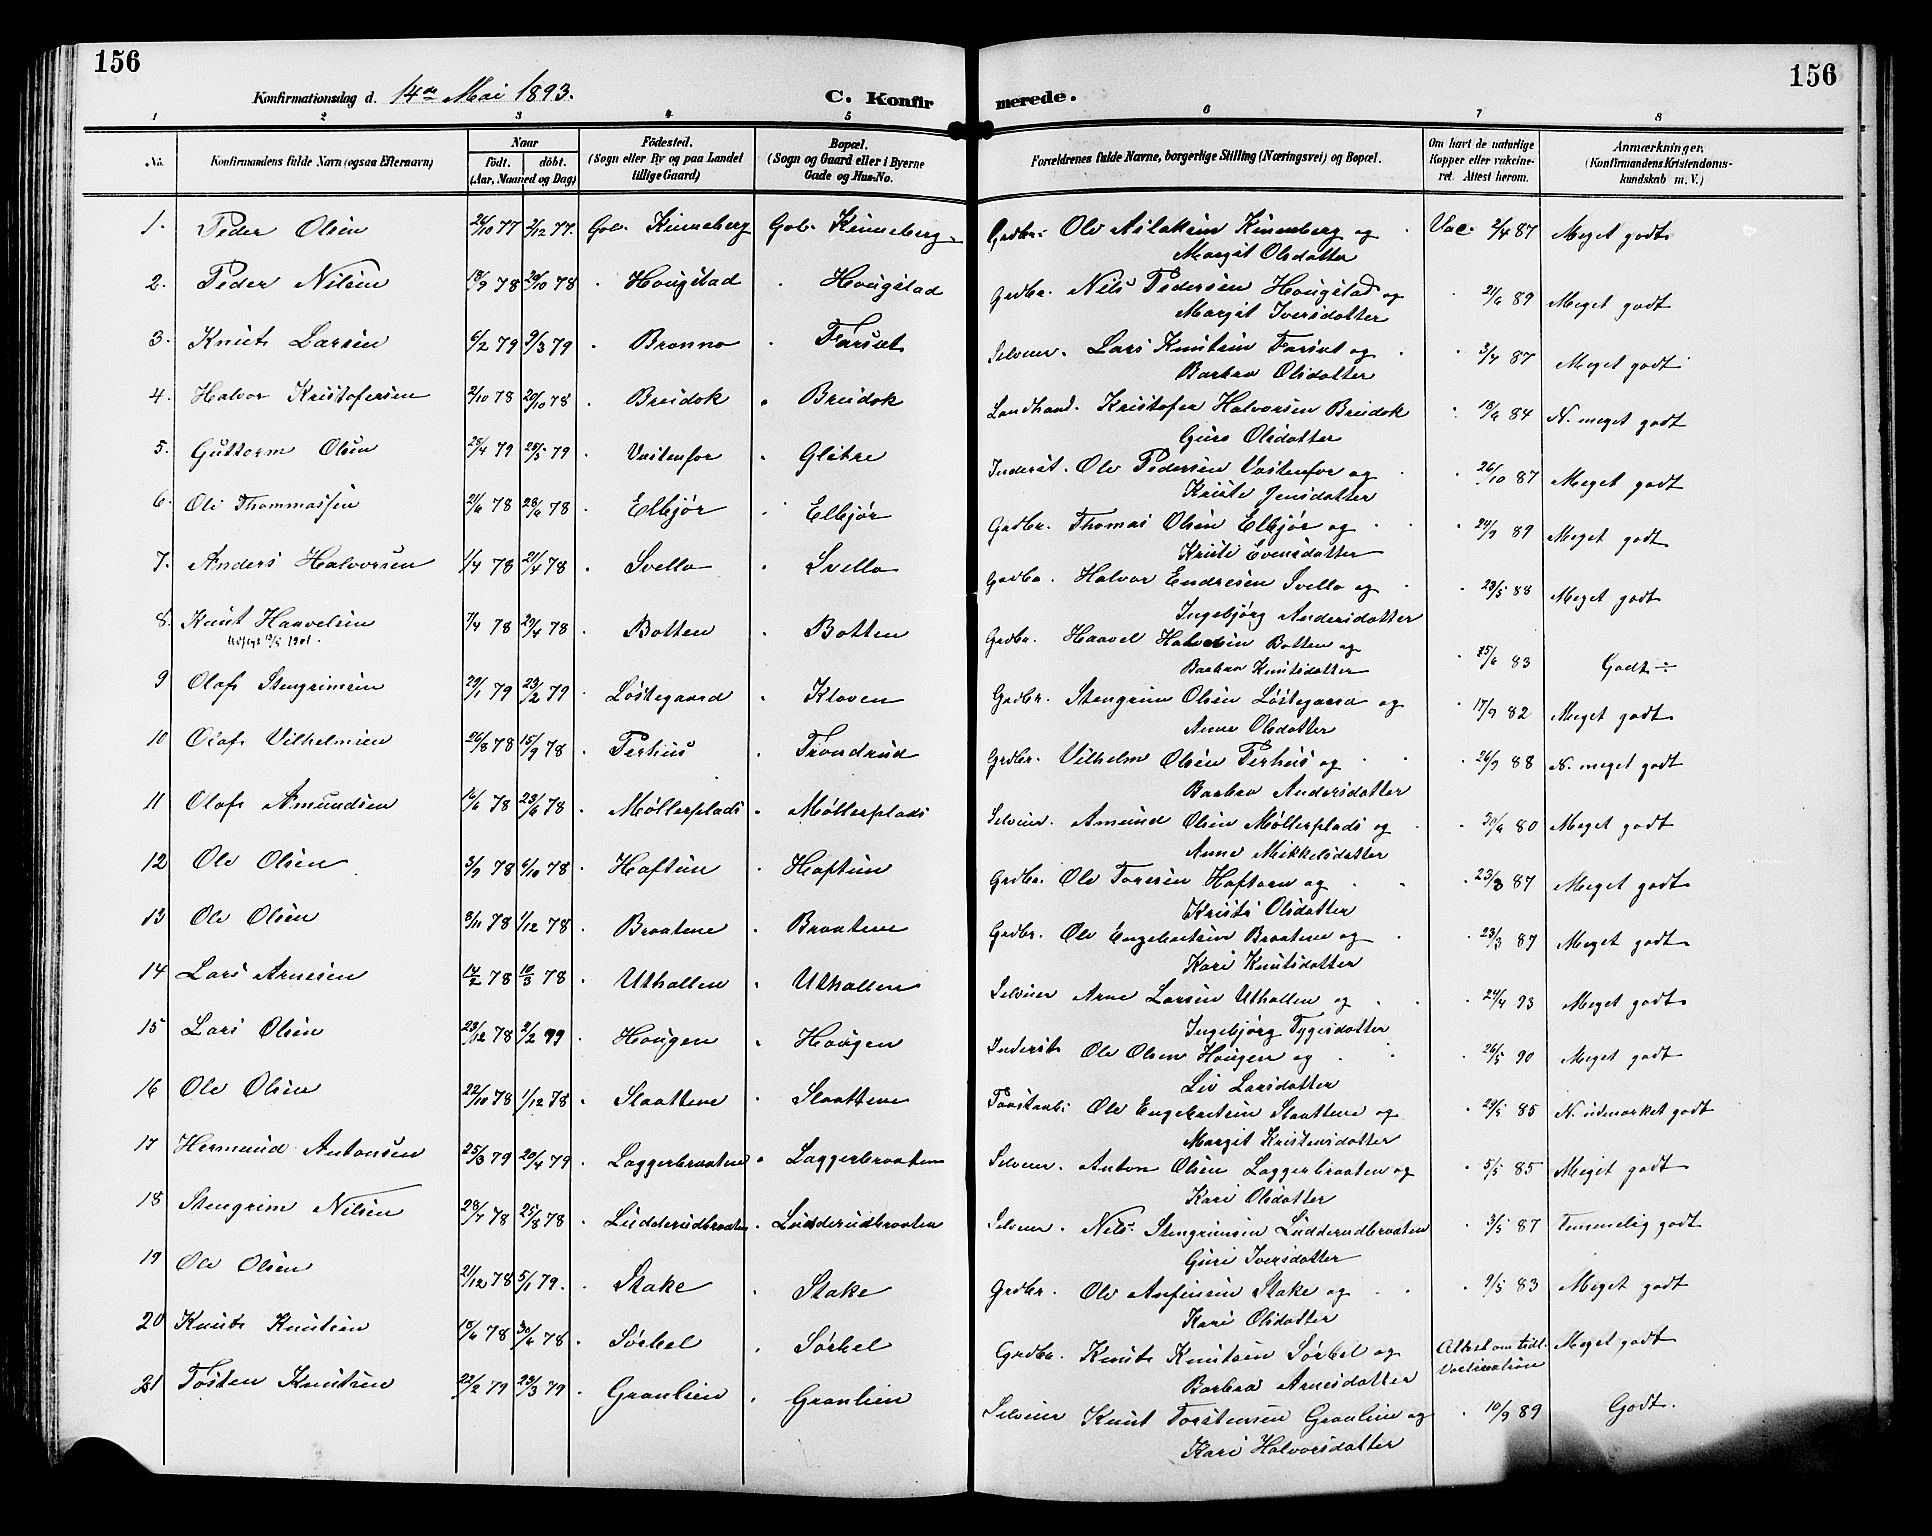 156
156
Konfirmationsdag d. 14de Mai 1893.
C. Konfirmerede.
1 2 3 4 5 6 7 8
No. Konfirmandens fulde Navn (ogsaa Efternavn) Naar født. døbt. (Aar, Maaned og Dag) Fødested. (Sogn eller By og paa Landet tillige Gaard) Bopæl. (Sogn og Gaard eller i Byerne Gade og Hus-No. Forældrenes fulde Navne, borgerlige Stilling (Næringsvei) og Bopæl. Om havt de naturlige Kopper eller vakcineret. Attest herom. Anmærkninger. (Konfirmandens Kristendomskundskab m. V.)
1. Peder Olsen 26/10 77 2/12 77. Gol. Kinneberg Gol. Kinneberg Grdbr. Ole Aslaksen Kinneberg og Vac. 2/4 87 Meget godt
Margit Olsdotter
2. Peder Nilsen 18/9 78 20/10 78 Hougstad Hougstad Grdbr. Nils Pedersen Hougstad og 21/6 89 Meget godt
Margit Iversdotter
3. Knut Larsen 6/2 79 9/3 79 Brenno Farset Selveier. Lars Knutsen Farset og 3/4 87 Meget godt
Barbro Olsdotter
4. Halvor Kristofersen 2/10 78 20/10 78 Breidok Breidok Landhand. Kristofer Halvorsen Breidok 18/9 84 N. meget godt
Guro Olsdotter
5. Guttorm Olsen 28/4 79 25/5 79 Vestenfor Glitre Inderst. Ole Pedersen Vestenfor og 26/10 87 Meget godt
Kristi Jensdotter
6. Ole Thommassen 21/6 78 28/6 78 Elbjør Elbjør Grdbr. Thomas Olsen Elbjør og 24/9 89 Meget godt
Kristi Evensdotter
7. Anders Halvorsen 1/4 78 21/4 78 Svello Svello Grdbr. Halvor Endresen Svello og 23/5 88 Meget godt
Ingebjørg Andersdotter
8. Knut Haavelsen 7/4 78 29/4 78 Botten Botten Grdbr. Haavel Halvorsen Botten og 25/6 83 Godt ÷
1901.
Barbro Knutsdotter
9 Olaf Stengrimsen 29/1 79 23/2 79 Løstegaard Kloven Grdbr. Stengrim Olsen Løstegaard og 17/9 82 Meget godt
Anne Olsdotter
10 Olaf Vilhelmsen 26/8 78 15/9 78 Perhus Trondrud Grdbr. Vilhelm Olsen Perhus og 26/9 88 N. meget godt
Barbro Andersdotter
11 Olaf Amundsen 16/6 78 23/6 78 Møllerplads Møllerplads Selveier. Amund Olsen Møllerplads og 30/9 80 Meget godt
Anne Mikkelsdotter
12 Ole Olsen 3/9 78 6/10 78 Haftun Haftun Grdbr. Ole Toresen Haftorn og 23/3 87 Meget godt
Kristi Olsdotter
13 Ole Olsen 8/11 78 1/12 78 Braatene Braatene Grdbr. Ole Engebretsen Braatene og 23/3 87 Meget godt
Kari Knutsdotter
14 Lars Arnesen 14/2 78 10/3 78 Uthallen Uthallen Selveier Arne Larsen Uthallen og 24/4 93 Meget godt
Ingebjørg Tygesdotter
15 Lars Olsen 23/12 78 2/2 79 Hougen Hougen Inderst Ole Olsen Hougen og 26/5 90 Meget godt
Liv Larsdotter
16 Ole Olsen 22/10 78 1/12 78 Slaattene Slaattene Ole Engebretsen Slaattene og 29/5 85 N. udmærket godt
Margit Kristensdotter
17 Hermund Antonsen 25/3 79 20/4 79 Laggerbraaten Laggerbraaten Selveier. Anton Olsen Laggerbraaten og 5/5 85 Meget godt
Kari Olsdotter
18 Stengrim Nilsen 28/7 78 25/8 78 Ludderudbraaten Ludderudbraaten Selveier. Nils Stengrimsen Ludderudbraaten 3/5 87 Temmelig godt
Guri Iversdotter
19 Ole Olsen 21/12 78 5/1 79. Stake Stake Grdbr. Ole Anfinsen Stake og 9/5 83 Meget godt
Kari Olsdotter
20 Knut Knutsen 15/6 78 30/6 78 Sørbel Sørbel Grdbr. Knut Knutsen Sørbel og Attest om tidl. Vaccination Meget godt
Barbro Arnesdotter
21 Tosten Knutsen 22/2 79 23/3 79 Granlien Granlien Selveier Knut Torstensen Granlien og 10/9 89 Godt.
Kari Halvorsdotter